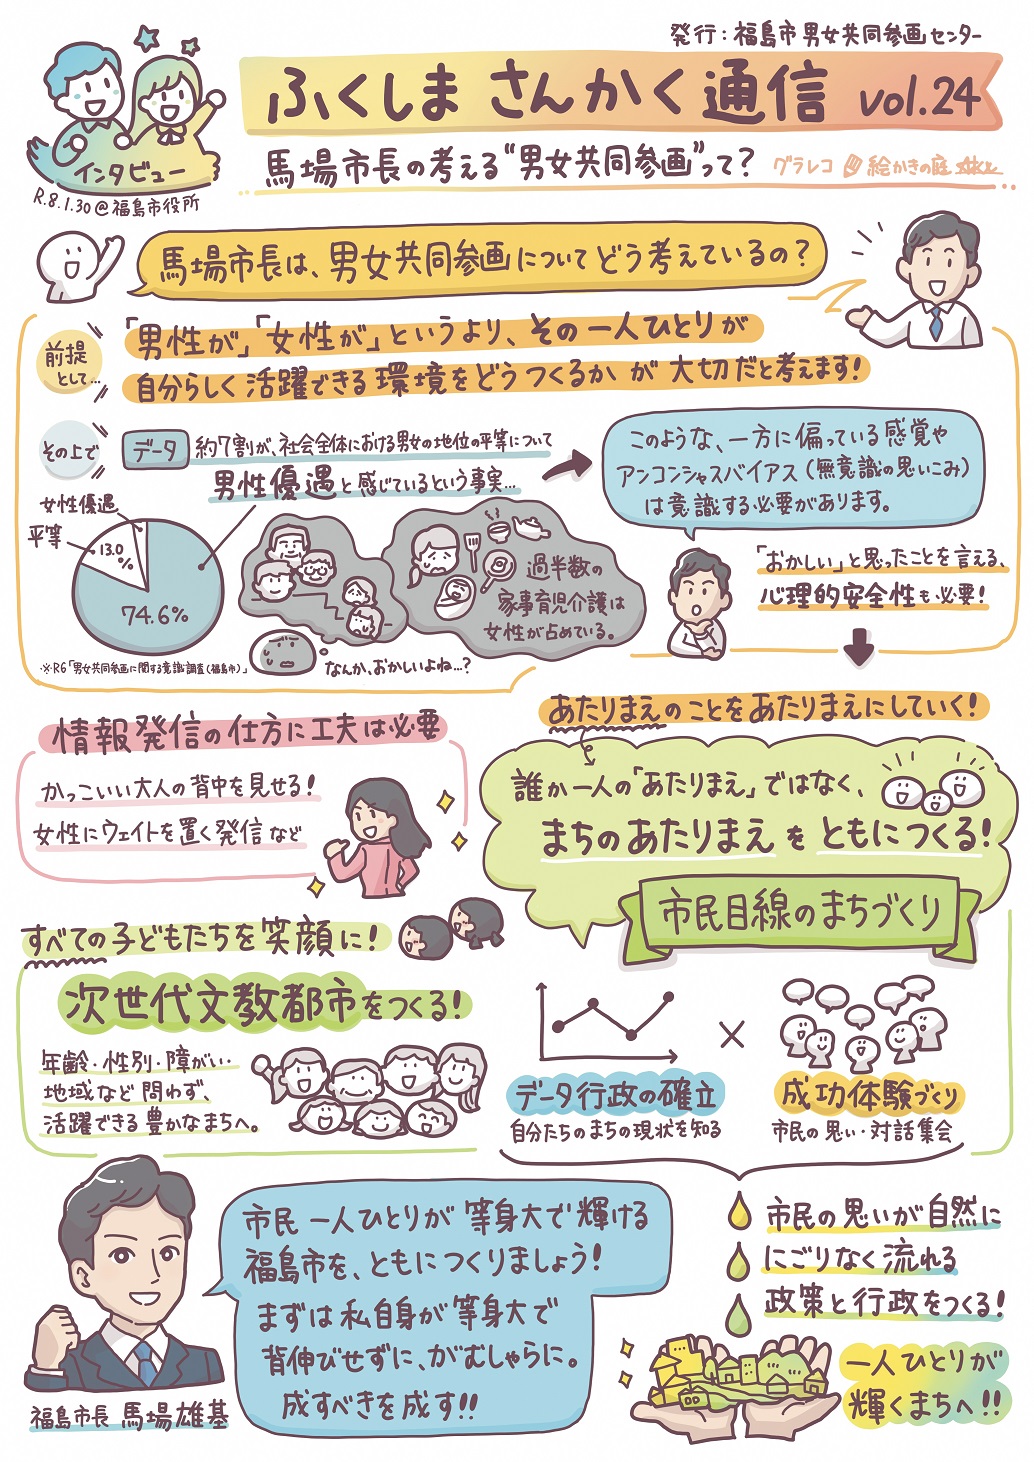 発行：福島市男女共同参画センター
ふくしま さんかく通信 vol.24
インタビュー
R.8.1.30@福島市役所
馬場市長の考える“男女共同参画”って？
グラレコ 絵かきの庭
馬場市長は、男女共同参画についてどう考えているの？
前提
として…
「男性が」「女性が」というより、その一人ひとりが
自分らしく活躍できる環境をどうつくるかが大切だと考えます！
その上で
データ
約7割が、社会全体における男女の地位の平等について
男性優遇と感じているという事実…
女性優遇
平等
13.0%
74.6%
※R6「男女共同参画に関する意識調査（福島市）」
過半数の
家事育児介護は
女性が占めている。
なんか、おかしいよね…？
このような、一方に偏っている感覚や
アンコンシャスバイアス（無意識の思いこみ）
は意識する必要があります。
「おかしい」と思ったことを言える、
心理的安全性も必要！
情報発信の仕方に工夫は必要
かっこいい大人の背中を見せる！
女性にウェイトを置く発信など
あたりまえのことをあたりまえにしていく！
誰か一人の「あたりまえ」ではなく、
まちのあたりまえをともにつくる！
市民目線のまちづくり
すべての子どもたちを笑顔に！
次世代文教都市をつくる！
年齢・性別・障がい・
地域など問わず、
活躍できる豊かなまちへ。
データ行政の確立
自分たちのまちの現状を知る
×
成功体験づくり
市民の思い・対話集会
市民の思いが自然に
にごりなく流れる
政策と行政をつくる！
一人ひとりが
輝くまちへ!!
市民一人ひとりが等身大で輝ける
福島市を、ともにつくりましょう！
まずは私自身が等身大で
背伸びせずに、がむしゃらに。
成すべきを成す!!
福島市長 馬場雄基